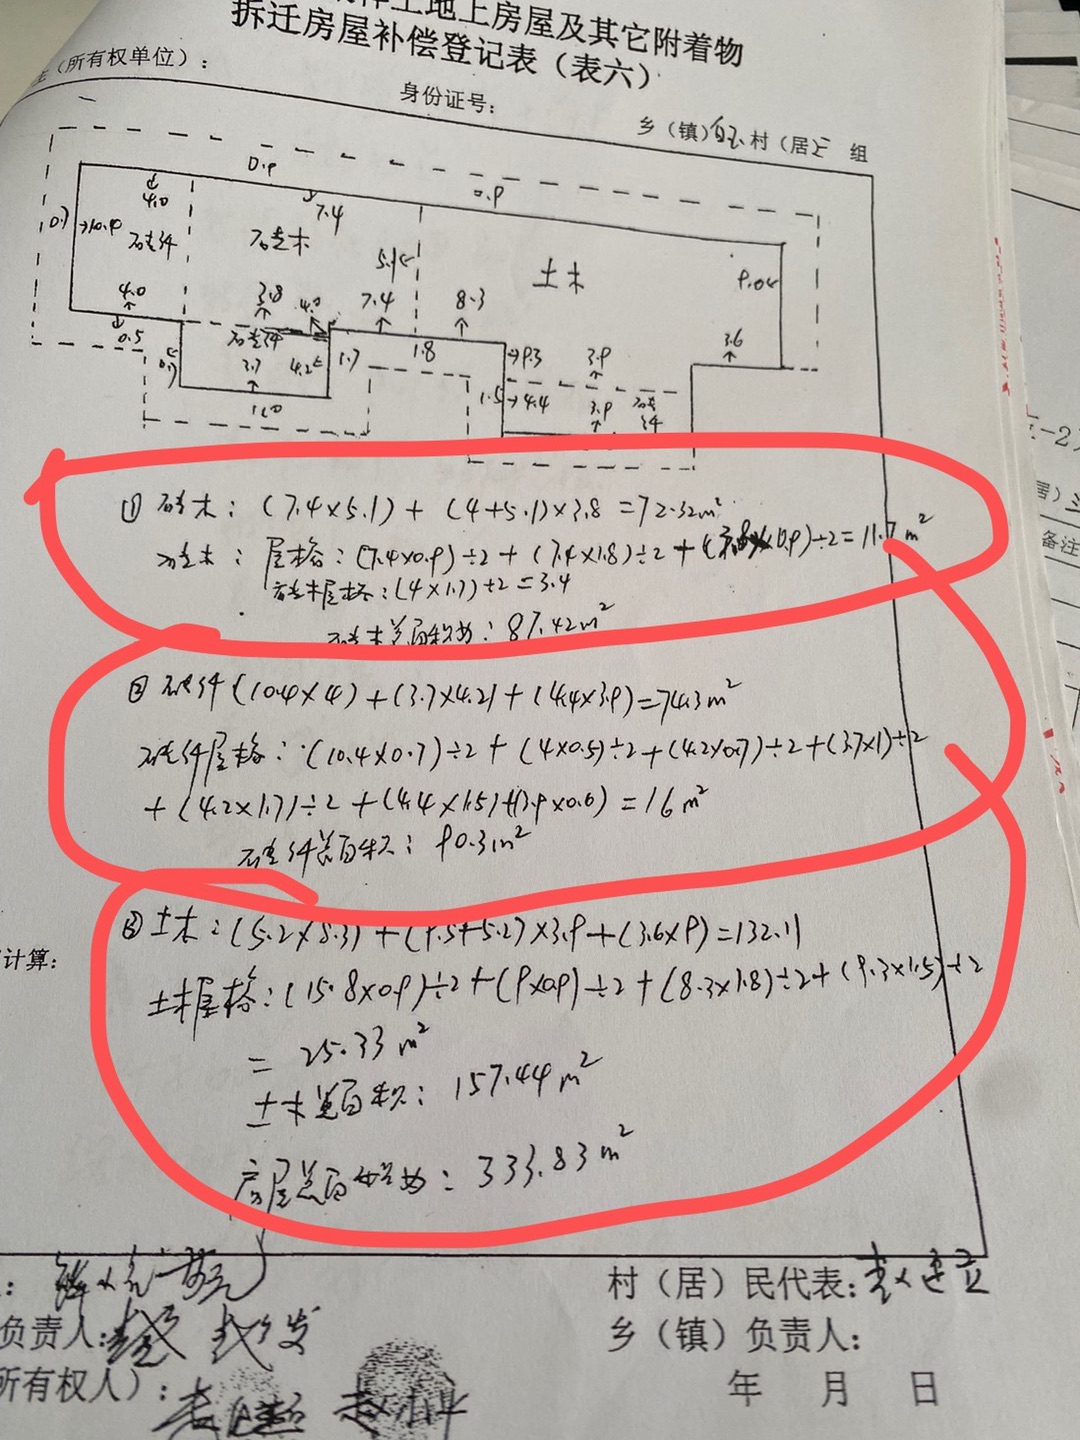 土地上房屋及其它附着物
拆迁房屋补偿登记表（表六）
（所有权单位）：
身份证号：
乡（镇） 村（居） 组
0.9
0.9
4.0
7.4
0.7
10.4
砖木
5.1
土木
9.0
4.0
3.8
4.0
7.4
8.3
3.6
0.5
0.7
3.7
4.2
1.7
1.8
9.3
3.9
1.5
4.4
3.9
1.0
① 砖木：(7.4×5.1)+(4+5.1)×3.8=72.32m²
屋檐：(7.4×0.9)÷2+(7.4×1.8)÷2+ ×0.9)÷2=11.7m²
砖木屋檐：(4×1.7)÷2=3.4
砖木总面积为：87.42m²
② 砖纤(10.4×4)+(3.7×4.2)+(4.4×3.9)=74.3m²
砖纤屋檐：(10.4×0.7)÷2+(4×0.5)÷2+(4.2×0.7)÷2+(3.7×1)÷2
+(4.2×1.7)÷2+(4.4×1.5)+(3.9×0.6)=16m²
砖纤总面积：90.3m²
③ 土木：(5.2×8.3)+(9.5+5.2)×3.9+(3.6×9)=132.11
土木屋檐：(15.8×0.9)÷2+(9×0.9)÷2+(8.3×1.8)÷2+(9.3×1.5)÷2
=25.33m²
土木总面积：157.44m²
房屋总面积为：333.83m²
计算：
村（居）民代表：
负责人：
乡（镇）负责人：
所有权人）：
年 月 日
备注